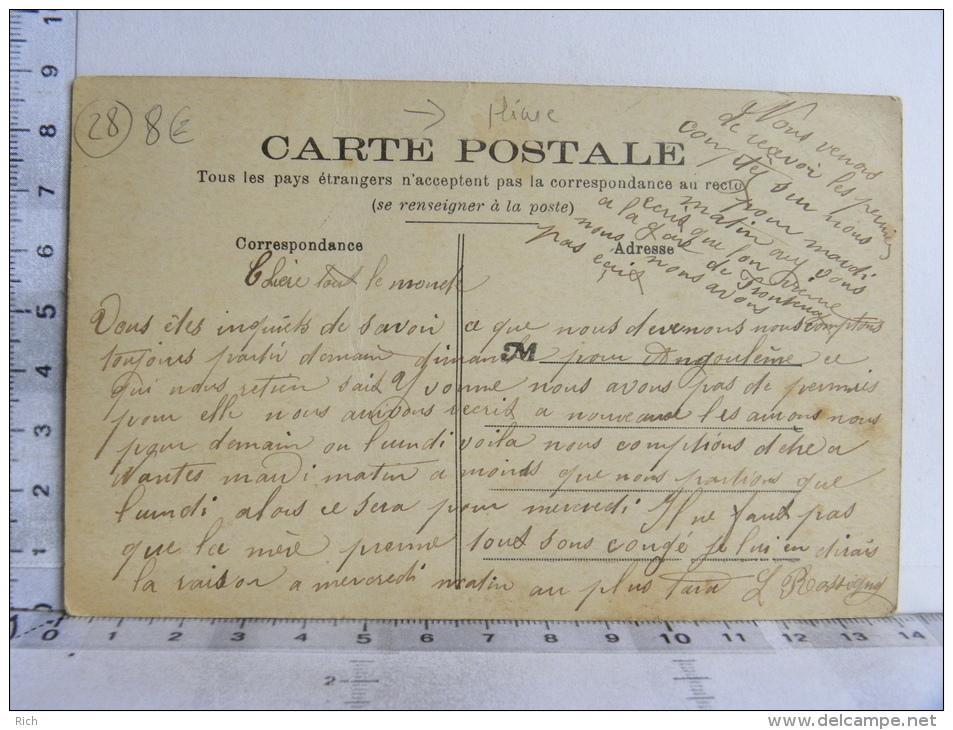 28 8€
CARTE POSTALE
Tous les pays étrangers n'acceptent pas la correspondance au recto
(se renseigner à la poste)
Correspondance
Adresse
M
Nous venons
de recevoir les permis
comptez sur nous
pour mardi
matin
écrit que l'on vienne
a la Gare de
nous nous avons
pas écrit
Chère tout le monde
Vous êtes inquiets de savoir ce que nous devenons nous comptons
toujours partir demain dimanche pour Angoulême ce
qui nous retien sait Yvonne nous avons pas de permis
pour elle nous avons recrit a nouveau les aurons nous
pour demain ou lundi voila nous comptions dêtre a
Nantes mardi matin a moins que nous partions que
lundi alors ce sera pour mercredi Il ne faut pas
que la mère prenne tout sous congé je lui en dirais
la raison a mercredi matin au plus tard L Rossignol
10
9
8
7
6
5
4
3
2
1
0
0 1 2 3 4 5 6 7 8 9 10 11 12 13 14
2
Rich
http://www.delcampe.net